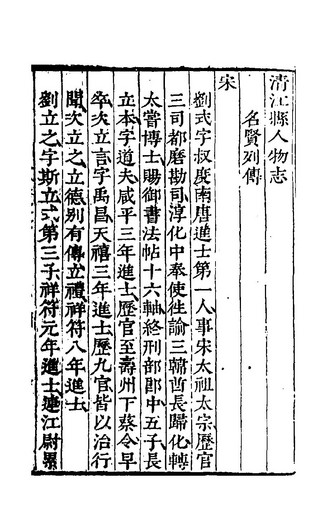 清江縣人物志
名賢列傳
宋
劉式字叔度南唐進士第一人事宋太祖太宗歷官
三司都磨勘司淳化中奉使徃諭三韓酋長歸化轉
太嘗博士賜御書法帖十六軸終刑部郎中五子長
立本字道夫咸平三年進士歷官至壽州下蔡令早
卒次立言字禹昌天禧三年進士歷九官皆以治行
聞次立之立德別有傳立禮祥符八年進士
劉立之字斯立式第三子祥符元年進士連江尉累